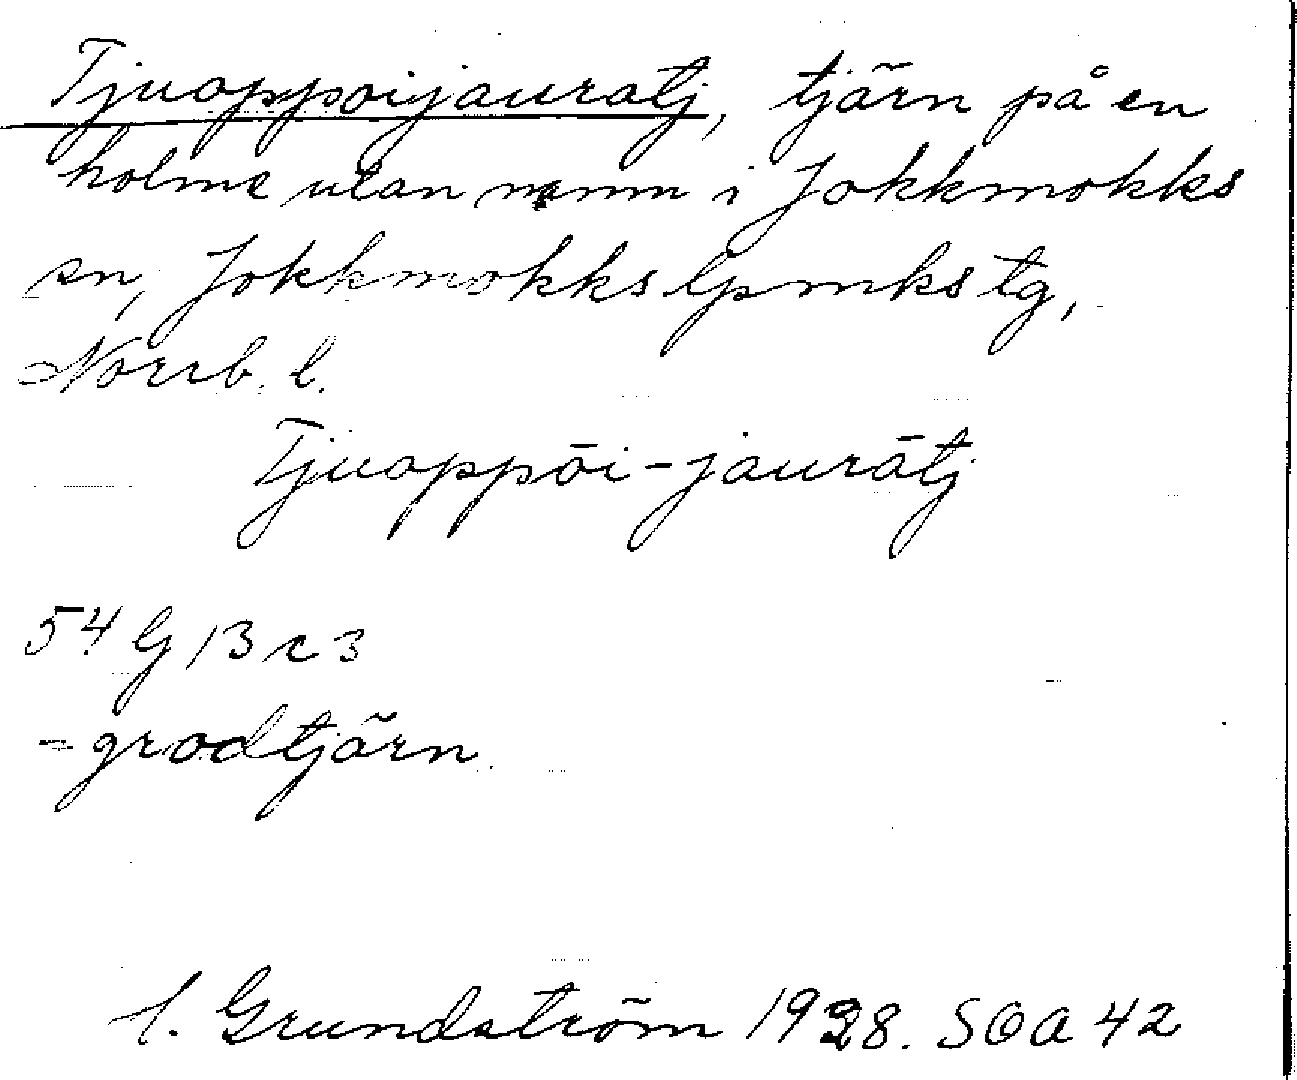 Tjuoppoijauratj, tjärn på en
holme utan namn i Jokkmokks
sn, Jokkmokks lpmks tg,
Norrb. l.
Tjuoppōi-jaurātj
54 G 13 c 3
= grodtjärn.
H. Grundström 1928. SOA 42